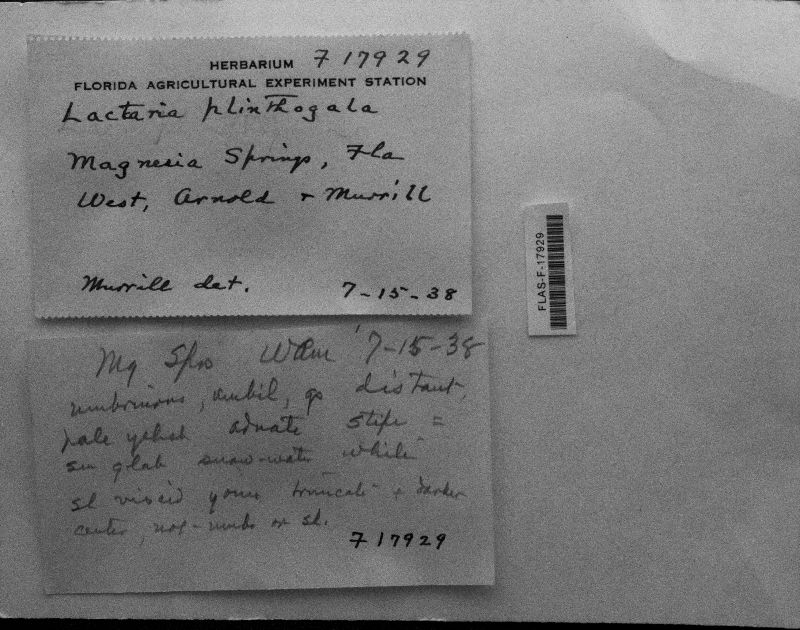 HERBARIUM F 17929
FLORIDA AGRICULTURAL EXPERIMENT STATION
Lactaria plinthogala
Magnesia Springs, Fla
West, Arnold + Murrill
Murrill det.
7-15-38
FLAS-F-17929
Mg Spgs 7-15-38
umbil, distant,
pale adnate stipe =
glab white
sl viscid young truncate + darker
center, or sl.
F 17929